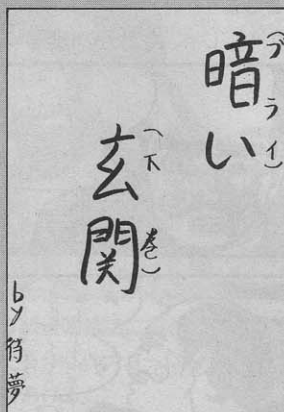 暗い(ブライ)
玄関(下巻)
by 待夢